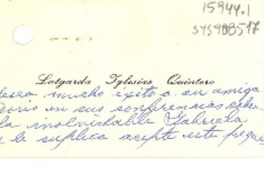 15944.1
sys988517
Lutgarda Iglesias Quintero
desea mucho éxito a su amiga
Doris en sus conferencias sobre
la inolvidable Gabriela
le suplica acepte este